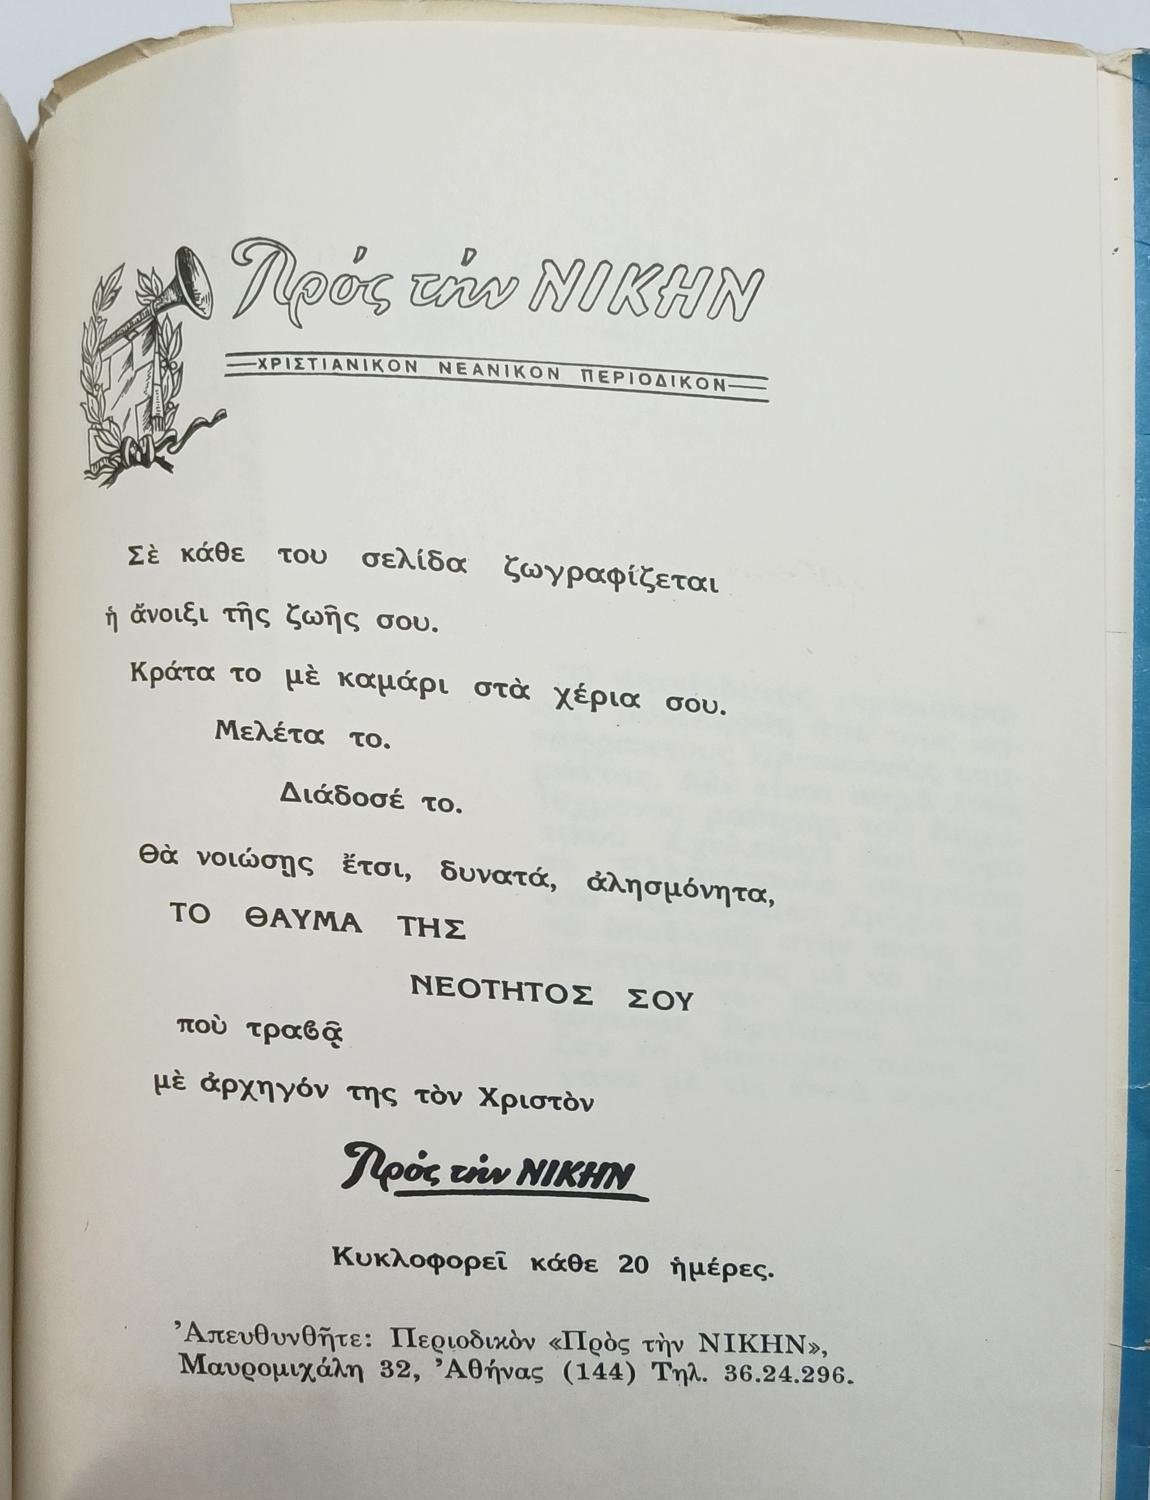 Πρός τήν ΝΙΚΗΝ
ΧΡΙΣΤΙΑΝΙΚΟΝ ΝΕΑΝΙΚΟΝ ΠΕΡΙΟΔΙΚΟΝ
Σὲ κάθε του σελίδα ζωγραφίζεται
ἡ ἄνοιξι τῆς ζωῆς σου.
Κράτα το μὲ καμάρι στὰ χέρια σου.
Μελέτα το.
Διάδοσέ το.
Θὰ νοιώσῃς ἔτσι, δυνατά, ἀλησμόνητα,
ΤΟ ΘΑΥΜΑ ΤΗΣ
ΝΕΟΤΗΤΟΣ ΣΟΥ
ποὺ τραβᾷ
μὲ ἀρχηγόν της τὸν Χριστὸν
Πρός τήν ΝΙΚΗΝ
Κυκλοφορεῖ κάθε 20 ἡμέρες.
Ἀπευθυνθῆτε: Περιοδικὸν «Πρὸς τὴν ΝΙΚΗΝ»,
Μαυρομιχάλη 32, Ἀθήνας (144) Τηλ. 36.24.296.